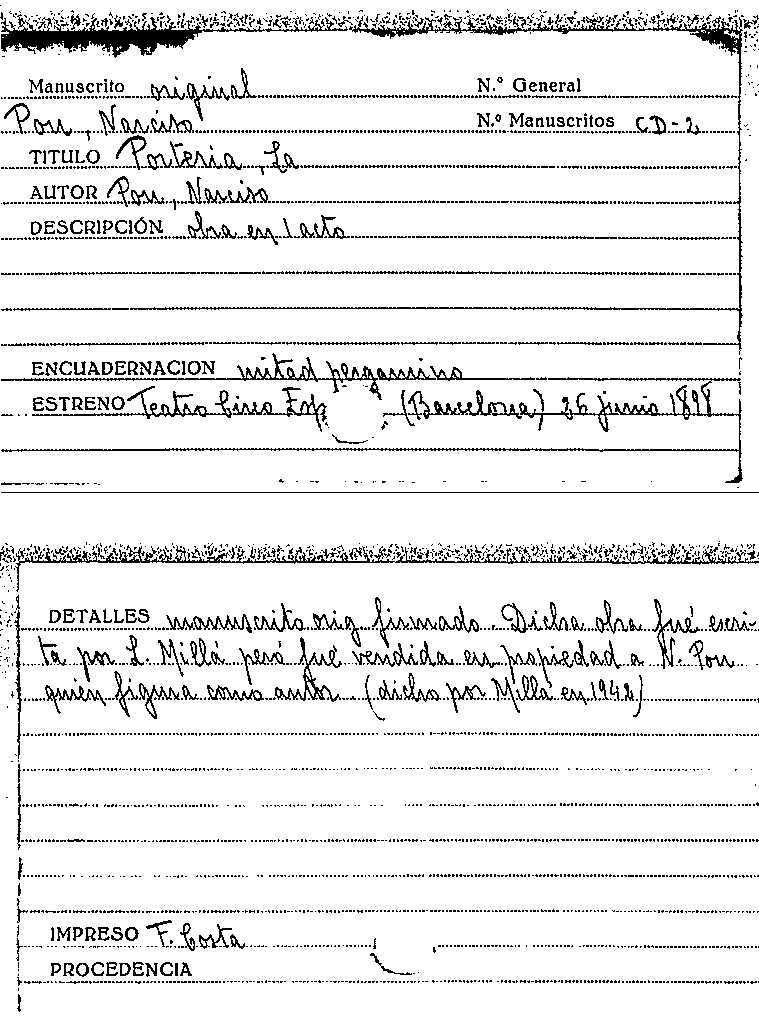 Manuscrito original N.º General
Pou, Narciso N.º Manuscritos CD-2
TITULO Porteria, La
AUTOR Pou, Narciso
DESCRIPCIÓN obra en 1 acto
ENCUADERNACION mitad pergamino
ESTRENO Teatro Circo Esp (Barcelona) 26 junio 1898
DETALLES manuscrito orig. firmado. Dicha obra fué escri-
ta por L. Millá peró fué vendida en propiedad a N. Pou
quién figura como autor. (dicho por Millá en 1942)
IMPRESO F. Costa
PROCEDENCIA